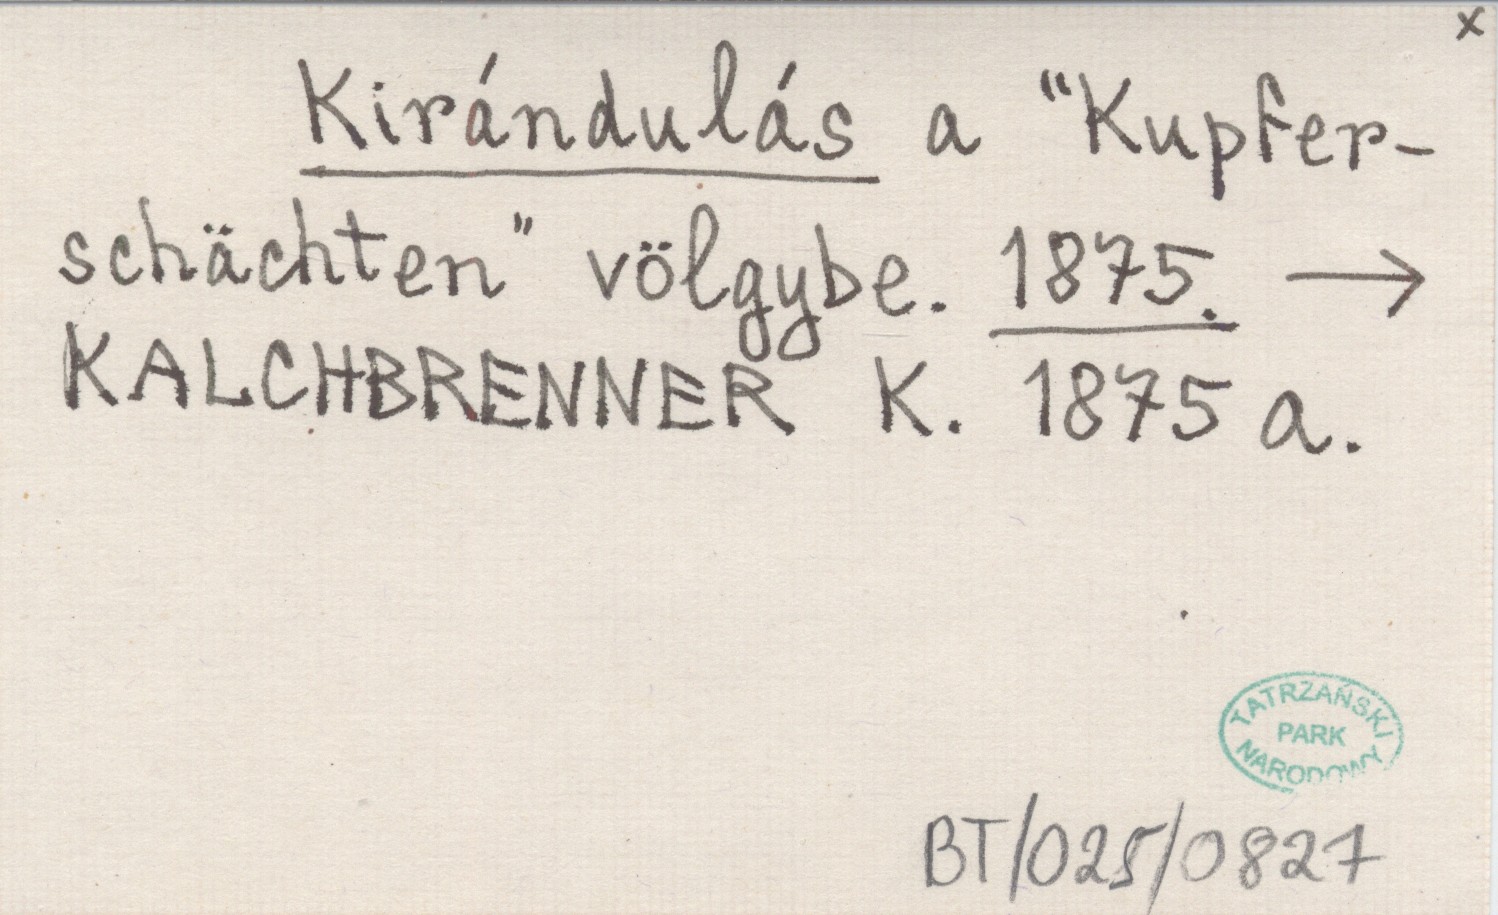 x
Kirándulás a "Kupfer-
schächten" völgybe. 1875. →
KALCHBRENNER K. 1875 a.
TATRZAŃSKI
PARK
NARODOWY
BT/025/0827